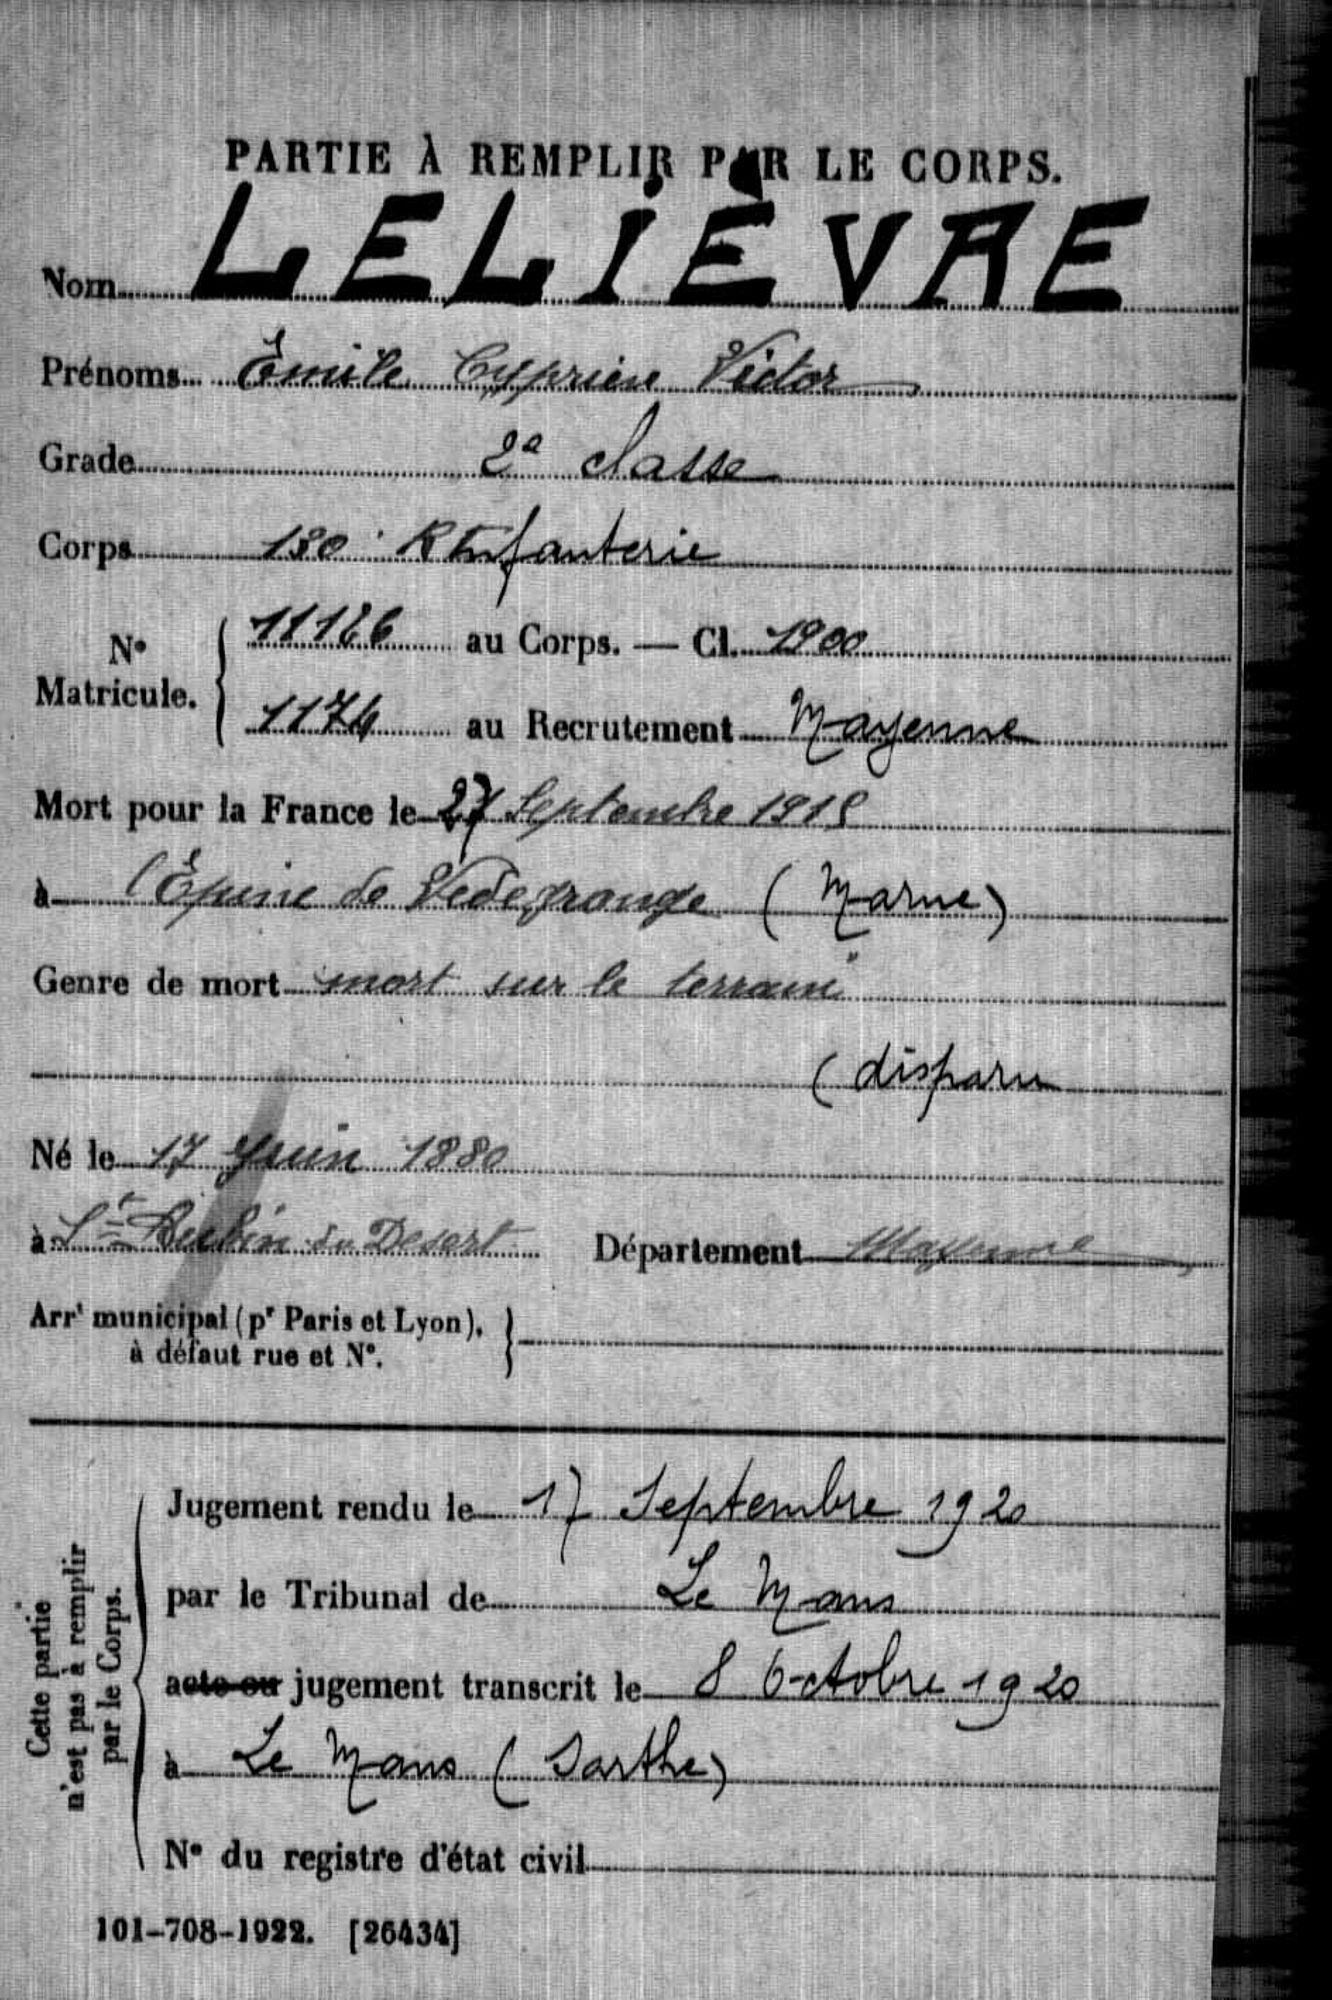 PARTIE À REMPLIR PAR LE CORPS.
Nom LELIÈVRE
Prénoms Émile Cyprien Victor
Grade 2e classe
Corps 130 R Infanterie
No Matricule. 11126 au Corps. — Cl. 1900
1174 au Recrutement Mayenne
Mort pour la France le 27 Septembre 1915
à l'Épine de Vedegrange (Marne)
Genre de mort mort sur le terrain
(disparu
Né le 17 Juin 1880
à St Aubin du Desert Département Mayenne
Arrt municipal (pr Paris et Lyon),
à défaut rue et No.
Cette partie
n'est pas à remplir
par le Corps.
Jugement rendu le 17 Septembre 1920
par le Tribunal de Le Mans
acte ou jugement transcrit le 8 Octobre 1920
à Le Mans (Sarthe)
No du registre d'état civil
101-708-1922. [26434]